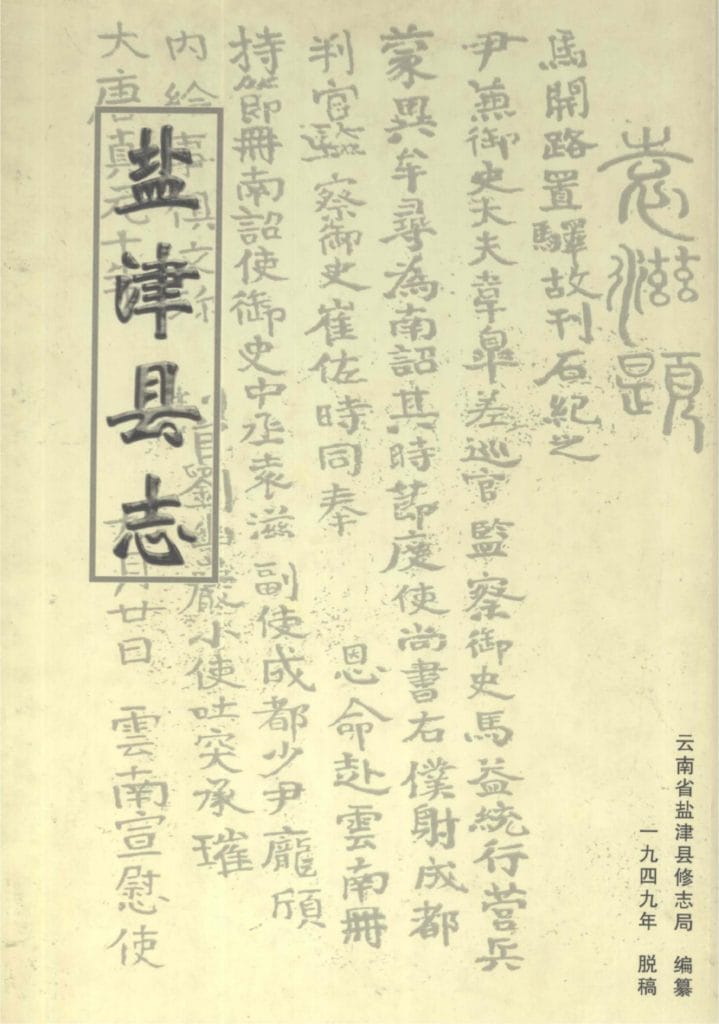 盐津县志
大唐貞元十年 月廿日 雲南宣慰使
内給事俱文 劉 巖小使吐突承璀
持節冊南詔使御史中丞袁滋 副使成都少尹龐頎
判官監察御史崔佐時同奉 恩命赴雲南冊
蒙異牟尋為南詔其時節度使尚書右僕射成都
尹兼御史大夫韋皐差巡官監察御史馬益統行營兵
馬開路置驛故刊石紀之
袁滋題
云南省盐津县修志局 编纂
一九四九年 脱稿